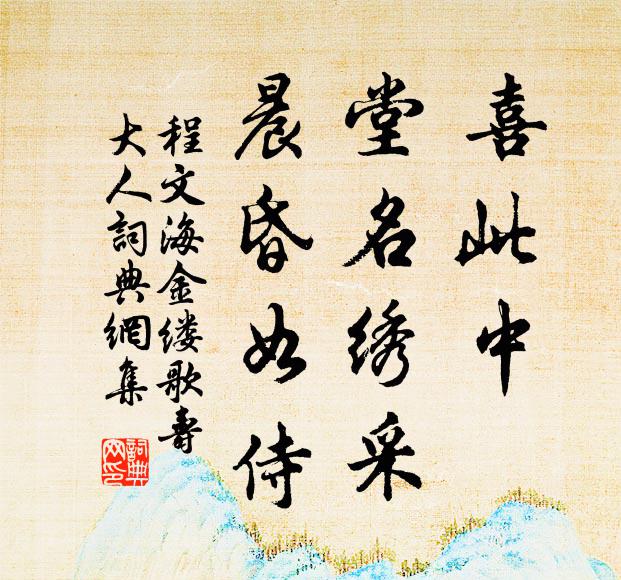 喜此中
堂名绣采
晨昏如侍
程文海金缕歌寿
大人詞典網集
詞典
网印